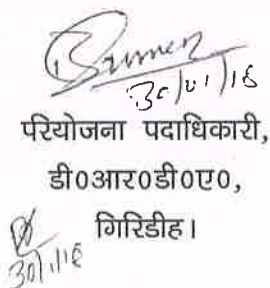 30/01/16
परियोजना पदाधिकारी,
डी०आर०डी०ए०,
गिरिडीह।
30/1/16